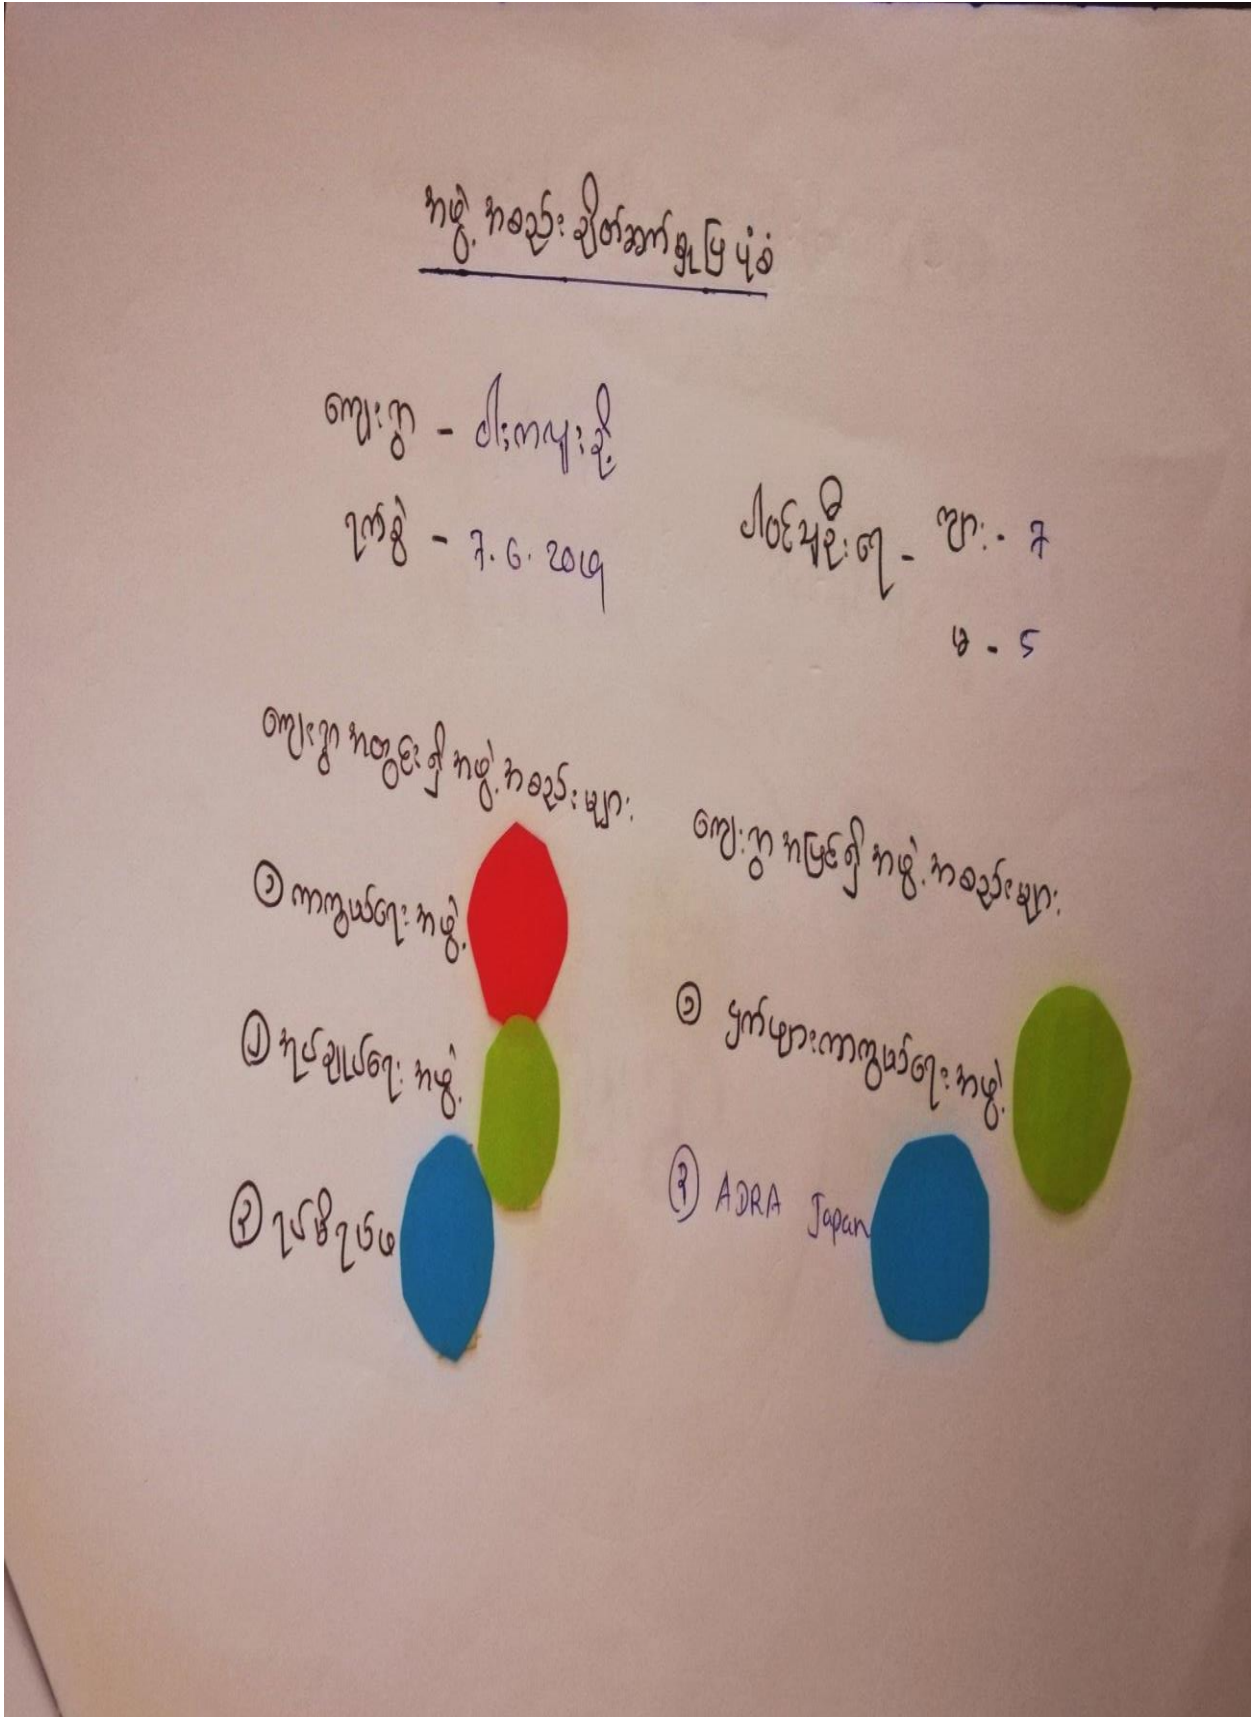 အဖွဲ့အစည်း ချိတ်ဆက်မှုပြပုံစံ
ကျေးရွာ - ဝါးကလူးခို့
ရက်စွဲ - ၇.၆.၂၀၁၅
ပါဝင်သူဦးရေ - ကျား - ၇
မ - ၄
ကျေးရွာအတွင်းရှိ အဖွဲ့အစည်းများ
① ကာကွယ်ရေးအဖွဲ့
② အုပ်ချုပ်ရေးအဖွဲ့
③ ရပ်မိရပ်ဖ
ကျေးရွာအပြင်ရှိ အဖွဲ့အစည်းများ
① ငှက်ဖျားကာကွယ်ရေးအဖွဲ့
② ADRA Japan